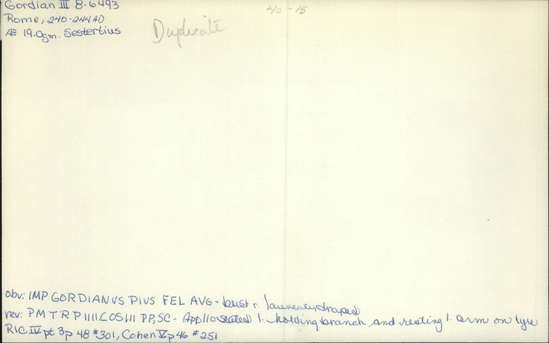 Gordian III 8-6493
40-15
Rome, 240-244 AD
Duplicate
Æ 19.0gm. Sestertius
obv: IMP GORDIANVS PIVS FEL AVG - bust r. laureate, draped
rev: P M T R P IIII COS III PP, SC - Apollo seated l. holding branch and resting l. arm on lyre
RIC IV pt 3 p 48 #301, Cohen V p 46 #251